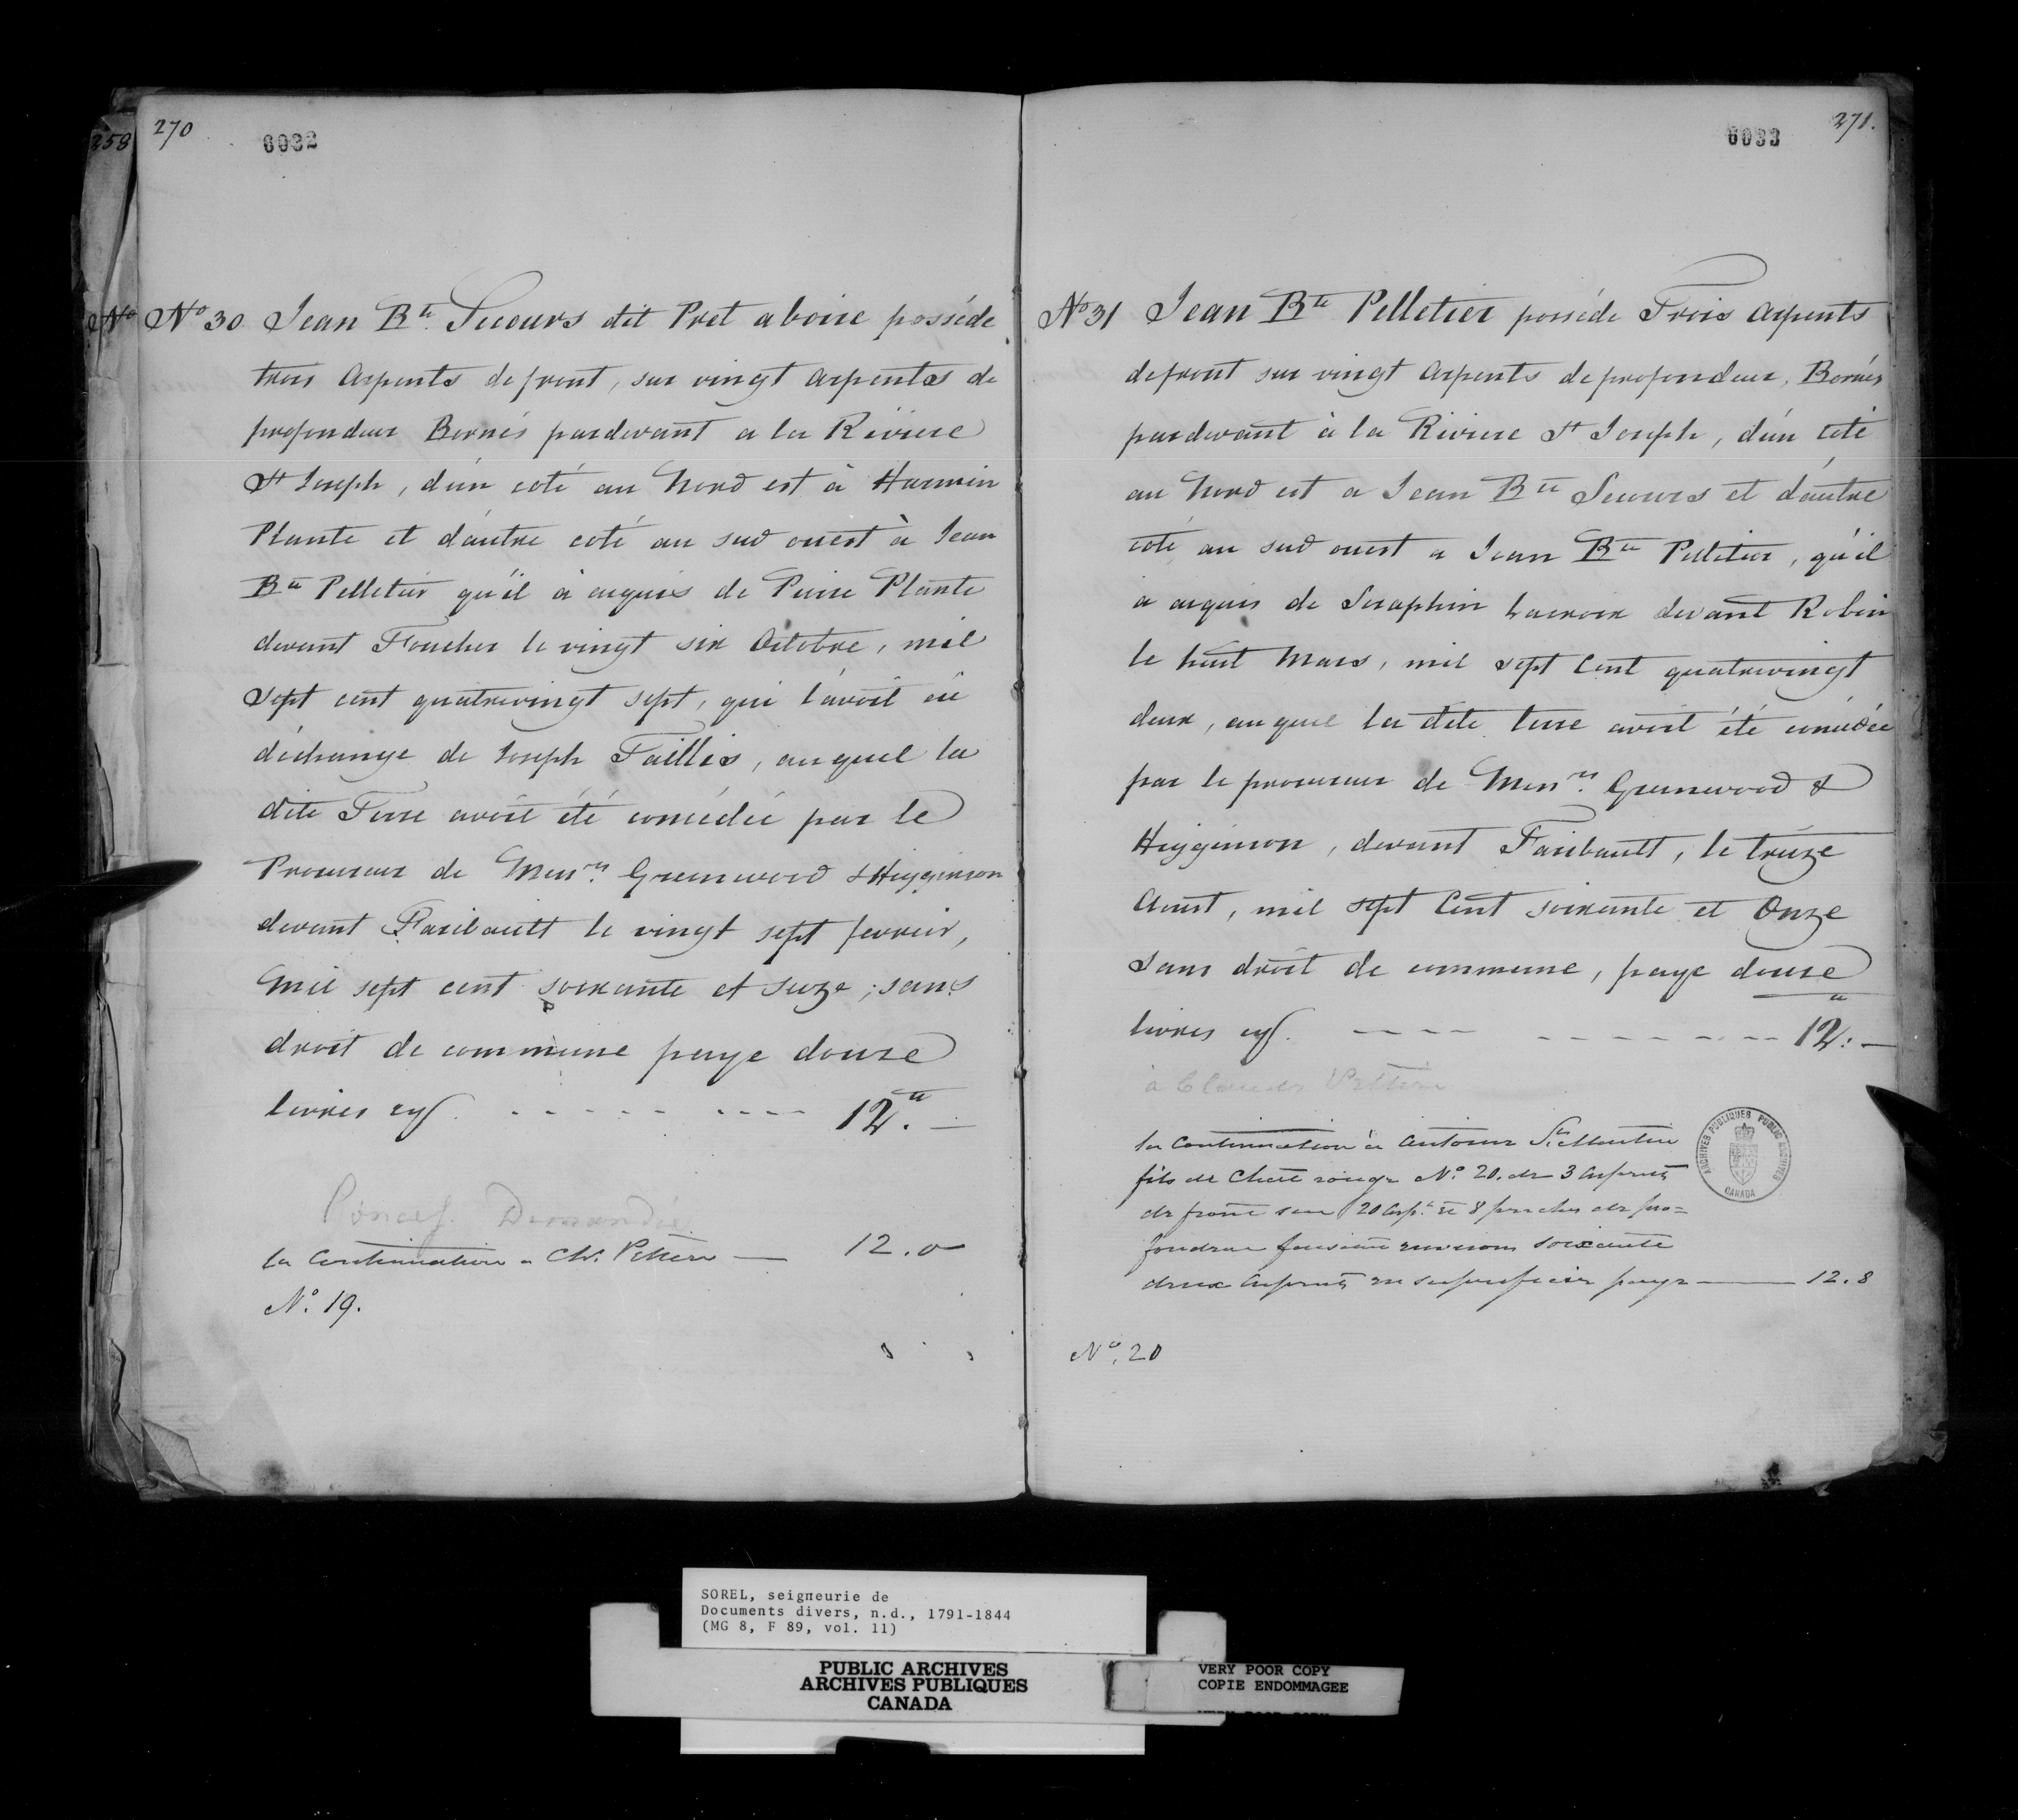 258
270
0032
No
No 30 Jean Bte Secours dit Pret a boire posséde
trois Arpents de front, sur vingt Arpents de
profondeur Bornés pardevant a la Riviere
St Joseph, d'un coté au Nord est à
Plante et d'autre coté au sud ouest à Jean
Bte Pelletier qu'il à acquis de Pierre Plante
devant Foucher le vingt six Octobre, mil
sept cent quatrevingt sept, qui l'avoit eü
d'échange de Joseph Faillés, auquel la
dite Terre avoit été concédée par le
Procureur de Messrs Greenwood & Higginson
devant Faribault le vingt sept fevrier,
mil sept cent soixante et seize; sans
droit de commune paye douze
livres cy 12.tt —
Demandée
la Continuation a Ch. Peltier — 12. 0
No. 19.
0033
271.
No 31 Jean Bte Pelletier posséde Trois Arpents
de front sur vingt Arpents de profondeur, Bornés
pardevant à la Riviere St Joseph, d'un coté
au Nord est a Jean Bte Secours et d'autre
coté au sud ouest a Jean Bte Pelletier, qu'il
a acquis de Seraphin Lacroix devant Robin
le huit Mars, mil sept Cent quatrevingt
deux, auquel la dite terre avoit été concédée
par le procureur de Messrs Greenwood &
Higginson, devant Faribault, le treize
Aoust, mil sept Cent soixante et Onze
sans droit de commune, paye douze
livres cy. 12.tt —
à Claude Peltier
la Continuation à Antoine St Martin
fils de Chate rouge No. 20. de 3 Arpents
de front sur 20 Arpt. et 8 perches de pro=
fondeur faisant environ soixante
deux Arpents en superficie paye — 12. 8
No. 20
ARCHIVES PUBLIQUES PUBLIC ARCHIVES
CANADA
SOREL, seigneurie de
Documents divers, n.d., 1791-1844
(MG 8, F 89, vol. 11)
PUBLIC ARCHIVES
ARCHIVES PUBLIQUES
CANADA
VERY POOR COPY
COPIE ENDOMMAGEE
VERY POOR COPY